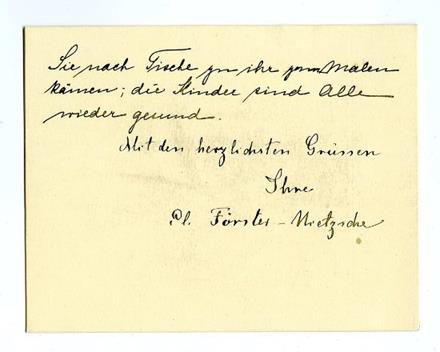 Sie nach Tische zu ihr zum Malen
kämen; die Kinder sind Alle
wieder gesund.
Mit den herzlichsten Grüssen
Ihre
El. Förster-Nietzsche